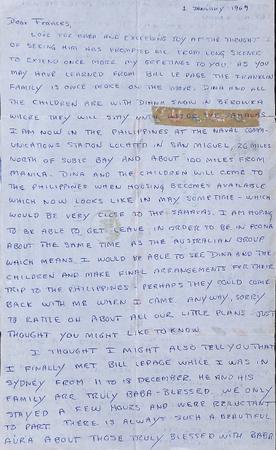 1 JANUARY 1969
DEAR FRANCES,
LOVE FOR BABA AND EXCEEDING JOY AT THE THOUGHT
OF SEEING HIM HAS PROMPTED ME FROM LONG SILENCE
TO EXTEND ONCE MORE MY GREETINGS TO YOU. AS YOU
MAY HAVE LEARNED FROM BILL LE PAGE THE FRANKLIN
FAMILY IS ONCE MORE ON THE MOVE. DINA AND ALL
THE CHILDREN ARE WITH DIANA SNOW IN BEROWRA
WHERE THEY WILL STAY THE SAHAVAS.
I AM NOW IN THE PHILIPPINES AT THE NAVAL COMM-
UNICATIONS STATION LOCATED IN SAN MIGUEL, 26 MILES
NORTH OF SUBIC BAY AND ABOUT 100 MILES FROM
MANILA. DINA AND THE CHILDREN WILL COME TO
THE PHILIPPINES WHEN HOUSING BECOMES AVAILABLE
WHICH NOW LOOKS LIKE IN MAY SOMETIME - WHICH
WOULD BE VERY CLOSE TO THE SAHAVAS. I AM HOPING
TO BE ABLE TO GET LEAVE IN ORDER TO BE IN POONA
ABOUT THE SAME TIME AS THE AUSTRALIAN GROUP
WHICH MEANS I WOULD BE ABLE TO SEE DINA AND THE
CHILDREN AND MAKE FINAL ARRANGEMENTS FOR THEIR
TRIP TO THE PHILIPPINES - PERHAPS THEY COULD COME
BACK WITH ME WHEN I CAME. ANYWAY, SORRY
TO RATTLE ON ABOUT ALL OUR LITTLE PLANS - JUST
THOUGHT YOU MIGHT LIKE TO KNOW.
I THOUGHT I MIGHT ALSO TELL YOU THAT
I FINALLY MET BILL LEPAGE WHILE I WAS IN
SYDNEY FROM 11 TO 18 DECEMBER. HE AND HIS
FAMILY ARE TRULY BABA-BLESSED. WE ONLY
STAYED A FEW HOURS AND WERE RELUCTANT
TO PART. THERE IS ALWAYS SUCH A BEAUTIFUL
AURA ABOUT THOSE TRULY BLESSED WITH BABA